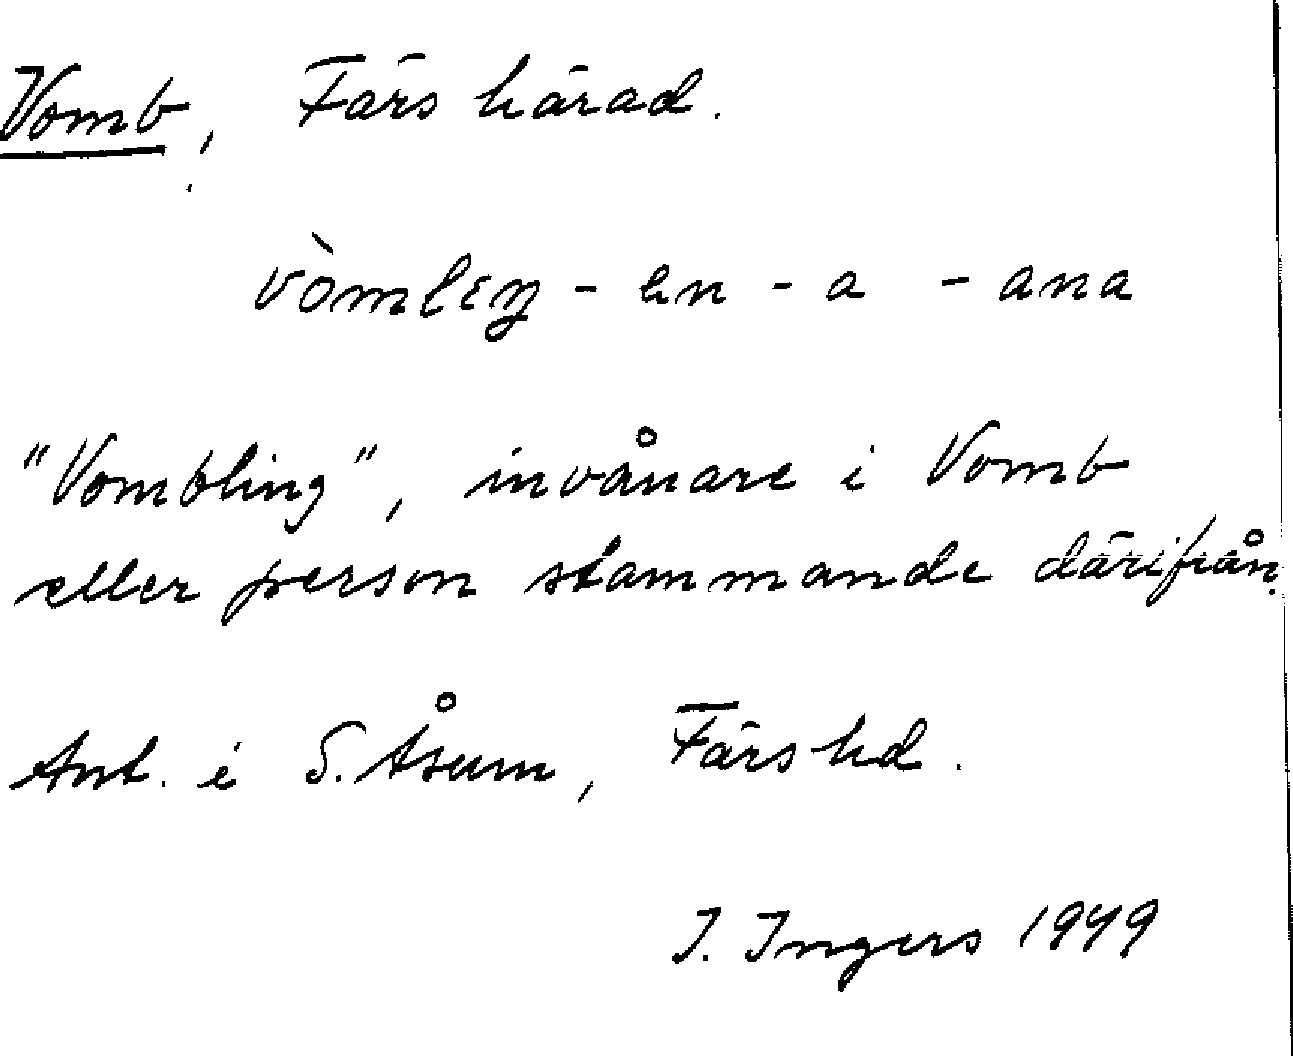 Vomb, Färs härad.
vòmlɛŋ - en - a - ana
"Vombling", invånare i Vomb
eller person stammande därifrån.
Ant. i S. Åsum, Färs hd.
I. Ingers 1949